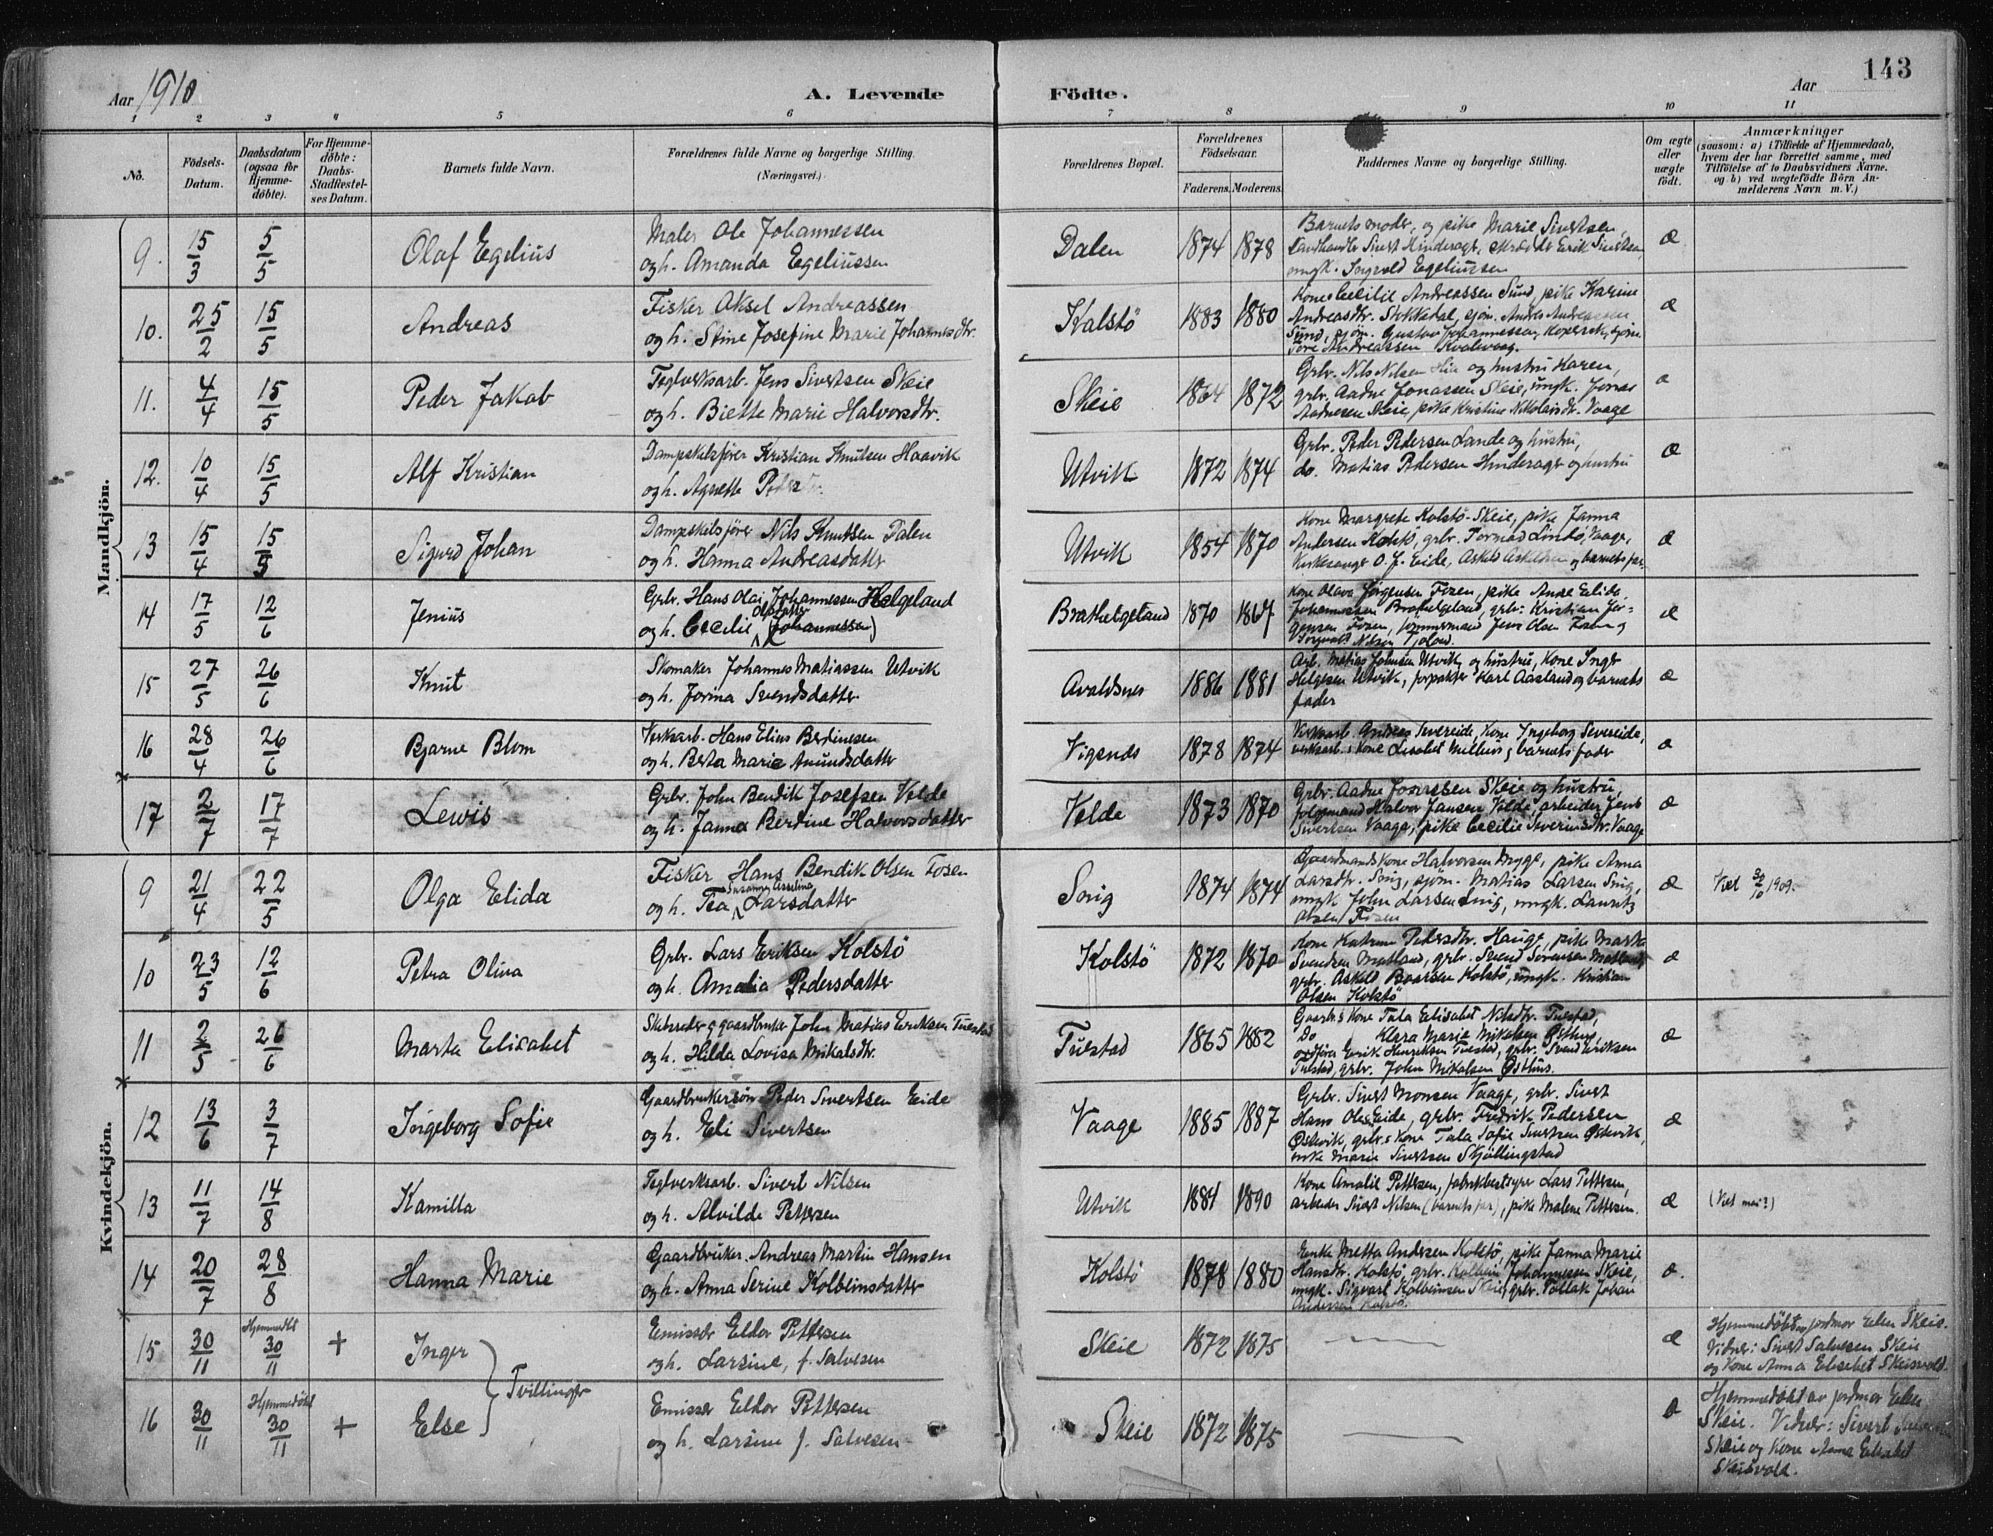 143
Aar 1910
A. Levende Födte.
Aar
1 2 3 4 5 6 7 8 9 10 11
No.
Födsels-Datum.
Daabsdatum (ogsaa for Hjemmedöbte).
For Hjemmedöbte: Daabs-Stadfæstelses Datum.
Barnets fulde Navn.
Forældrenes fulde Navne og borgerlige Stilling. (Næringsvei.)
Forældrenes Bopæl.
Forældrenes Födselsaar.
Faderens. Moderens.
Faddernes Navne og borgerlige Stilling.
Om ægte eller uægte födt.
Anmærkninger
(saasom: a) i Tilfælde af Hjemmedaab, hvem der har forrettet samme, med Tilföielse af to Daabsvidners Navne. og b) ved uægtefödte Börn Anmelderens Navn m.V.)
Mandkjön.
9. 15/3 5/5 Olaf Egelius
Maler Ole Johannessen
og h. Amanda Egeliussen
Dalen 1874 1878
Barnets moder, og pike Marie Sivertsen,
Landhandler Sivert Hinderager, Erik Sivertsen,
ungk. Ingvald Egeliussen
æ
10. 25/2 15/5 Andreas
Fisker Aksel Andreassen
og h. Stine Josefine Marie Johannesdtr.
Kalstö 1883 1880
Kone Cecilie Andreassen Sund, pike Karine
Andreasdtr. Stokkedal, sjöm. Andres Andreassen
Sund, sjöm. Gustav Johannessen, Kopervik, sjöm.
Tore Andreassen Kvalevaag.
æ
11. 4/4 15/5 Peder Jakob
Teglverksarb. Jens Sivertsen Skeie
og h. Biette Marie Halvorsdtr.
Skeie 1864 1872
Grbr. Nils Nilsen og hustru Karen,
grbr. Aadne Jonassen Skeie, ungk. Jonas
Aadnesen Skeie, pike Kristine Nikolaisdtr. Vaage
æ
12. 10/4 15/5 Alf Kristian
Dampskibsförer Kristian Knutsen Haavik
og h. Agnette
Utvik 1872 1874
Grbr. Peder Pedersen Lande og hustru,
do. Matias Pedersen Hinderager og hustru
æ
13 15/4 15/5 Sigurd Johan
Dampskibsförer Nils Knutsen Dalen
og h. Hanna Andreasdatter
Utvik 1854 1870
Kone Margrete Kolstö-Skeie, pike Janna
Andersen Kolstö, grbr. Tormod Lindö, Vaage,
Kirkesanger O. J. Eide, Askild Askildsen og barnets far
æ
14 17/5 12/6 Jenius
Grbr. Hans Olai Johannessen Helgeland
og h. Cecilie Olsdatter (Johannessen)
Brathelgeland 1870 1867
Kone Olava Jörgensen Fosen, pike Anne Elide
Johannessen Brathelgeland, grbr. Kristian Jörgensen
Fosen, tömmermand Jens Olsen Fosen og
Ingvald Nilsen
æ
15 27/5 26/6 Knut
Skomaker Johannes Matiassen Utvik
og h. Jorina Svendsdatter
Avaldsnes 1886 1881
Arb. Matias Johnsen Utvik og hustru, kone Inger
Helgesen Utvik, forpakter Karl Aasland og barnets
fader
æ
16 28/4 26/6 Bjarne Blom
Verksarb. Hans Elius Bertinesen
og h. Berta Marie Amundsdatter
Vigsnds 1878 1874
Verksarb. Andreas Severeide, kone Ingeborg Severeide,
verksarb.s kone Lisabet og barnets fader
æ
17 2/7 17/7 Lewis
Grbr. John Bendik Josefsen Velde
og h. Janna Bertine Halvorsdatter
Velde 1873 1870
Grbr. Aadne Jonassen Skeie og hustru,
Halvor Jansen Velde, arbeider Jens
Sivertsen Vaage, pike Cecilie Severinsdtr. Vaage
æ
Kvindekjön.
9 21/4 22/5 Olga Elida
Fisker Hans Bendik Olsen Fosen
og h. Tea Larsdatter
Snig 1874 1874
Gaardmands kone Halvorsen Myge, pike Anna
Larsdtr. Snig, sjöm. Matias Larsen Snig,
ungk. John Larsen Snig, ungk. Lauritz
Olsen Fosen
æ
Viet 30/10 1909.
10 23/5 12/6 Petra Oliva
Grbr. Lars Eriksen Kolstö
og h. Amalia Pedersdatter
Kolstö 1872 1870
Kone Katrine Pedersdtr. Hauge, pike Marta
Svendsen Matland, grbr. Svend Sörensen Matland,
grbr. Askild Baarsen Kolstö, ungk. Kristian
Olsen Kolstö
æ
11 2/5 26/6 Marta Elisabet
Skibsreder og gaardbruker John Matias Eriksen Tuestad
og h. Hilda Lovisa Mikalsdtr.
Tuestad 1865 1882
Gaardb.s kone Tala Elisabet Nilsdtr. Tuestad,
Do Klara Marie Mikalsen Östhus,
ordförer Erik Henriksen Tuestad, grbr. Svend Eriksen
Tuestad, grbr. John Mikalsen Östhus.
æ
12 13/6 3/7 Ingeborg Sofie
Gaardbrukersön Peder Sivertsen Eide
og h. Eli Sivertsen
Vaage 1885 1887
Grbr. Sivert Monsen Vaage, grbr. Sivert
Hans Olai Eide, grbr. Fredrik Pedersen
Öskevik, grbr.s kone Tala Sofie Sivertsen Öskevik,
enke Marie Sivertsen Skjöllingstad
æ
13 11/7 14/8 Kamilla
Teglverksarb. Sivert Nilsen
og h. Alvilde Pettersen
Utvik 1884 1890
Kone Amalie Pettersen, fabrikbestyrer Lars Pettersen,
arbeider Sivert Nilsen (barnets far), pike Malene Pettersen.
æ
(Viet mai?)
14 20/7 28/8 Hanna Marie
Gaardbruker Andreas Martin Hansen
og h. Anna Serine Kolbeinsdatter
Kolstö 1878 1880
Enke Metta Andersen Kolstö, pike Janna Marie
Hansdtr. Kolstö, grbr. Kolbein Johannessen Skeie,
ungk. Sigvart Kolbeinsen Skeie, grbr. Tollak Johan
Andersen Kolstö.
æ.
15 30/11 Hjemmedbt 30/11 + Inger
Emissær Eldor Pettersen
og h. Larsine, f. Salvesen
Skeie 1872 1875
—
æ
Hjemmedöbt av jordmor Elen Skeie.
Vidner: Sivert Salvesen Skeie
og kone Anna Elisabet Skeisvold.
} Tvillinger
16 30/11 Hjemmedöbt 30/11 + Else
Emissær Eldor Pettersen
og h. Larsine f. Salvesen
Skeie 1872 1875
—
æ
Hjemmedöbt av jordmor Elen
Skeie. Vidner: Sivert
Skeie og kone Anna Elisabet
Skeisvold.